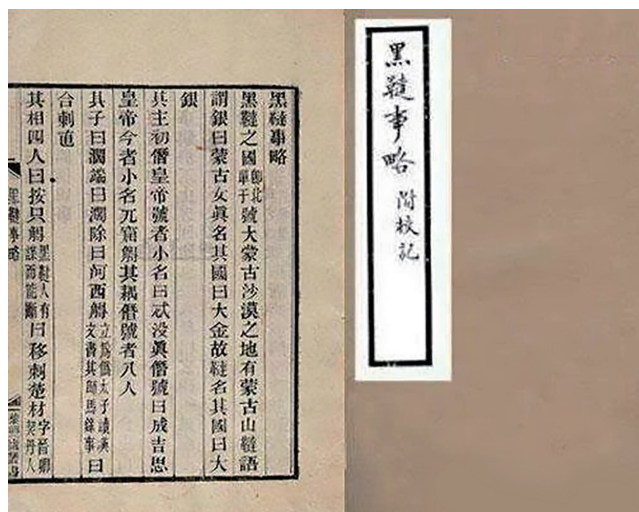 黑韃事略 附校記
黑韃事略
黑韃之國即北單于號大蒙古沙漠之地有蒙古山韃語
謂銀曰蒙古女眞名其國曰大金故韃名其國曰大
銀
其主初僭皇帝號者小名曰忒没眞僭號曰成吉思
皇帝今者小名兀窟䚟其耦僭號者八人
其子曰濶端曰濶除曰河西䚟立爲僞太子讀漢文書其師馬錄事曰
合剌直
其相四人曰按只䚟黑韃人有謀而能斷曰移剌楚材字晉卿契丹人
黑韃事略